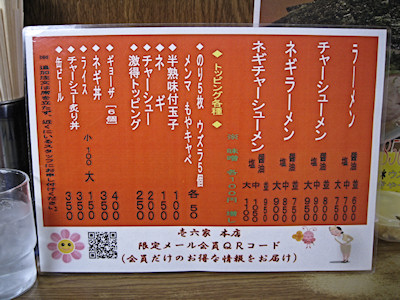 ラーメン 醤油 塩 並 中 大
チャーシューメン 醤油 塩 並 中 大
ネギラーメン 醤油 塩 並 中 大
ネギチャーシューメン 醤油 塩 並 中 大
◆トッピング各種◆
◆のり5枚 ウズラ5個
メンマ もやキャベ 各50
◆半熟味付玉子 100
◆ネギ 150
◆チャーシュー 200
◆激得トッピング 250
◆ギョーザ(6個) 400
◆ネギ丼 350
◆ライス 小100 大150
◆チャーシュー炙り丼 350
◆缶ビール 350
※追加注文は席を立たず、近くにいるスタッフにお申し付けください。
壱六家 本店
限定メール会員QRコード
(会員だけのお得な情報をお届け)